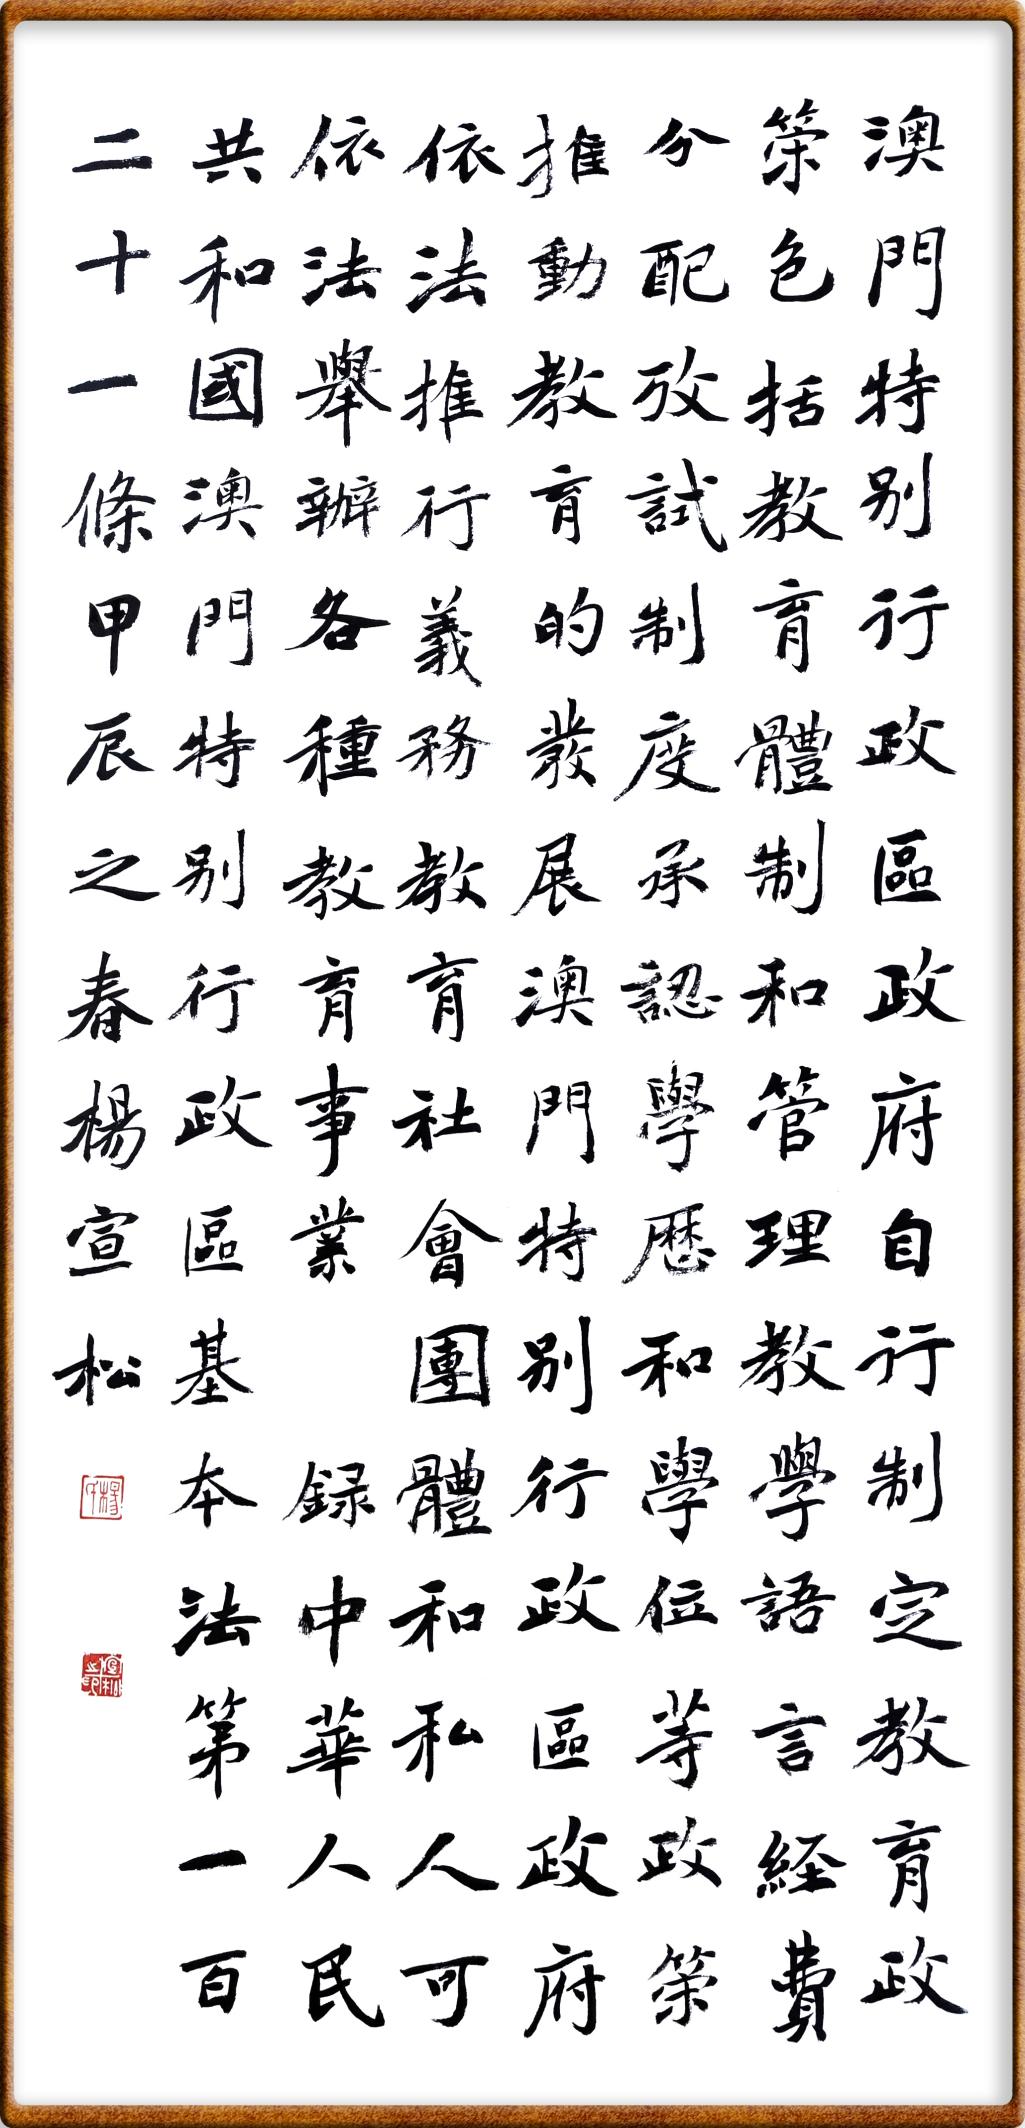 澳門特别行政區政府自行制定教育政
策包括教育體制和管理教學語言經費
分配攷試制度承認學歷和學位等政策
推動教育的發展澳門特别行政區政府
依法推行義務教育社會團體和私人可
依法舉辦各種教育事業 録中華人民
共和國澳門特别行政區基本法第一百
二十一條甲辰之春楊宣松